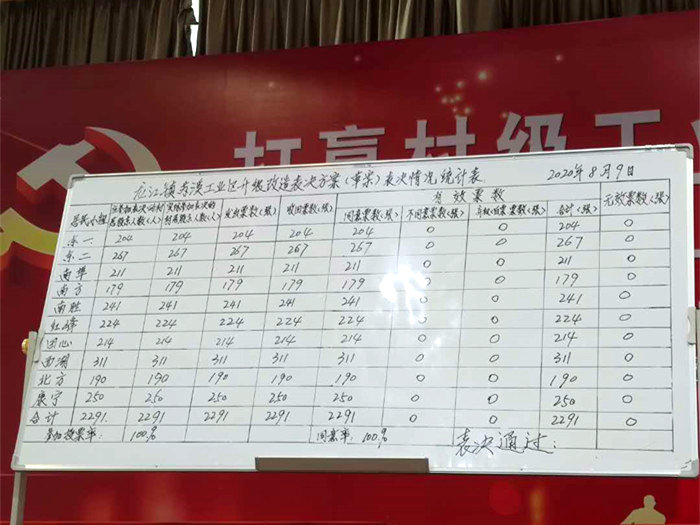 打赢村级工
龙江镇秀溪工业区升级改造表决方案(草案)表决情况统计表 2020年8月9日
居民小组 应参加表决的村居股东人数(人) 实际参加表决的村居股东人数(人) 发放票数(张) 收回票数(张) 有效票数 无效票数(张)
同意票数(张) 不同意票数(张) 弃权的票票数(张) 合计(张)
东一 204 204 204 204 204 0 0 204 0
东二 267 267 267 267 267 0 0 267 0
南华 211 211 211 211 211 0 0 211 0
南方 179 179 179 179 179 0 0 179 0
南胜 241 241 241 241 241 0 0 241 0
红峰 224 224 224 224 224 0 0 224 0
同心 214 214 214 214 214 0 0 214 0
西湖 311 311 311 311 311 0 0 311 0
北方 190 190 190 190 190 0 0 190 0
康宁 250 250 250 250 250 0 0 250 0
合计 2291 2291 2291 2291 2291 0 0 2291 0
参加投票率: 100% 同意率: 100% 表决通过: